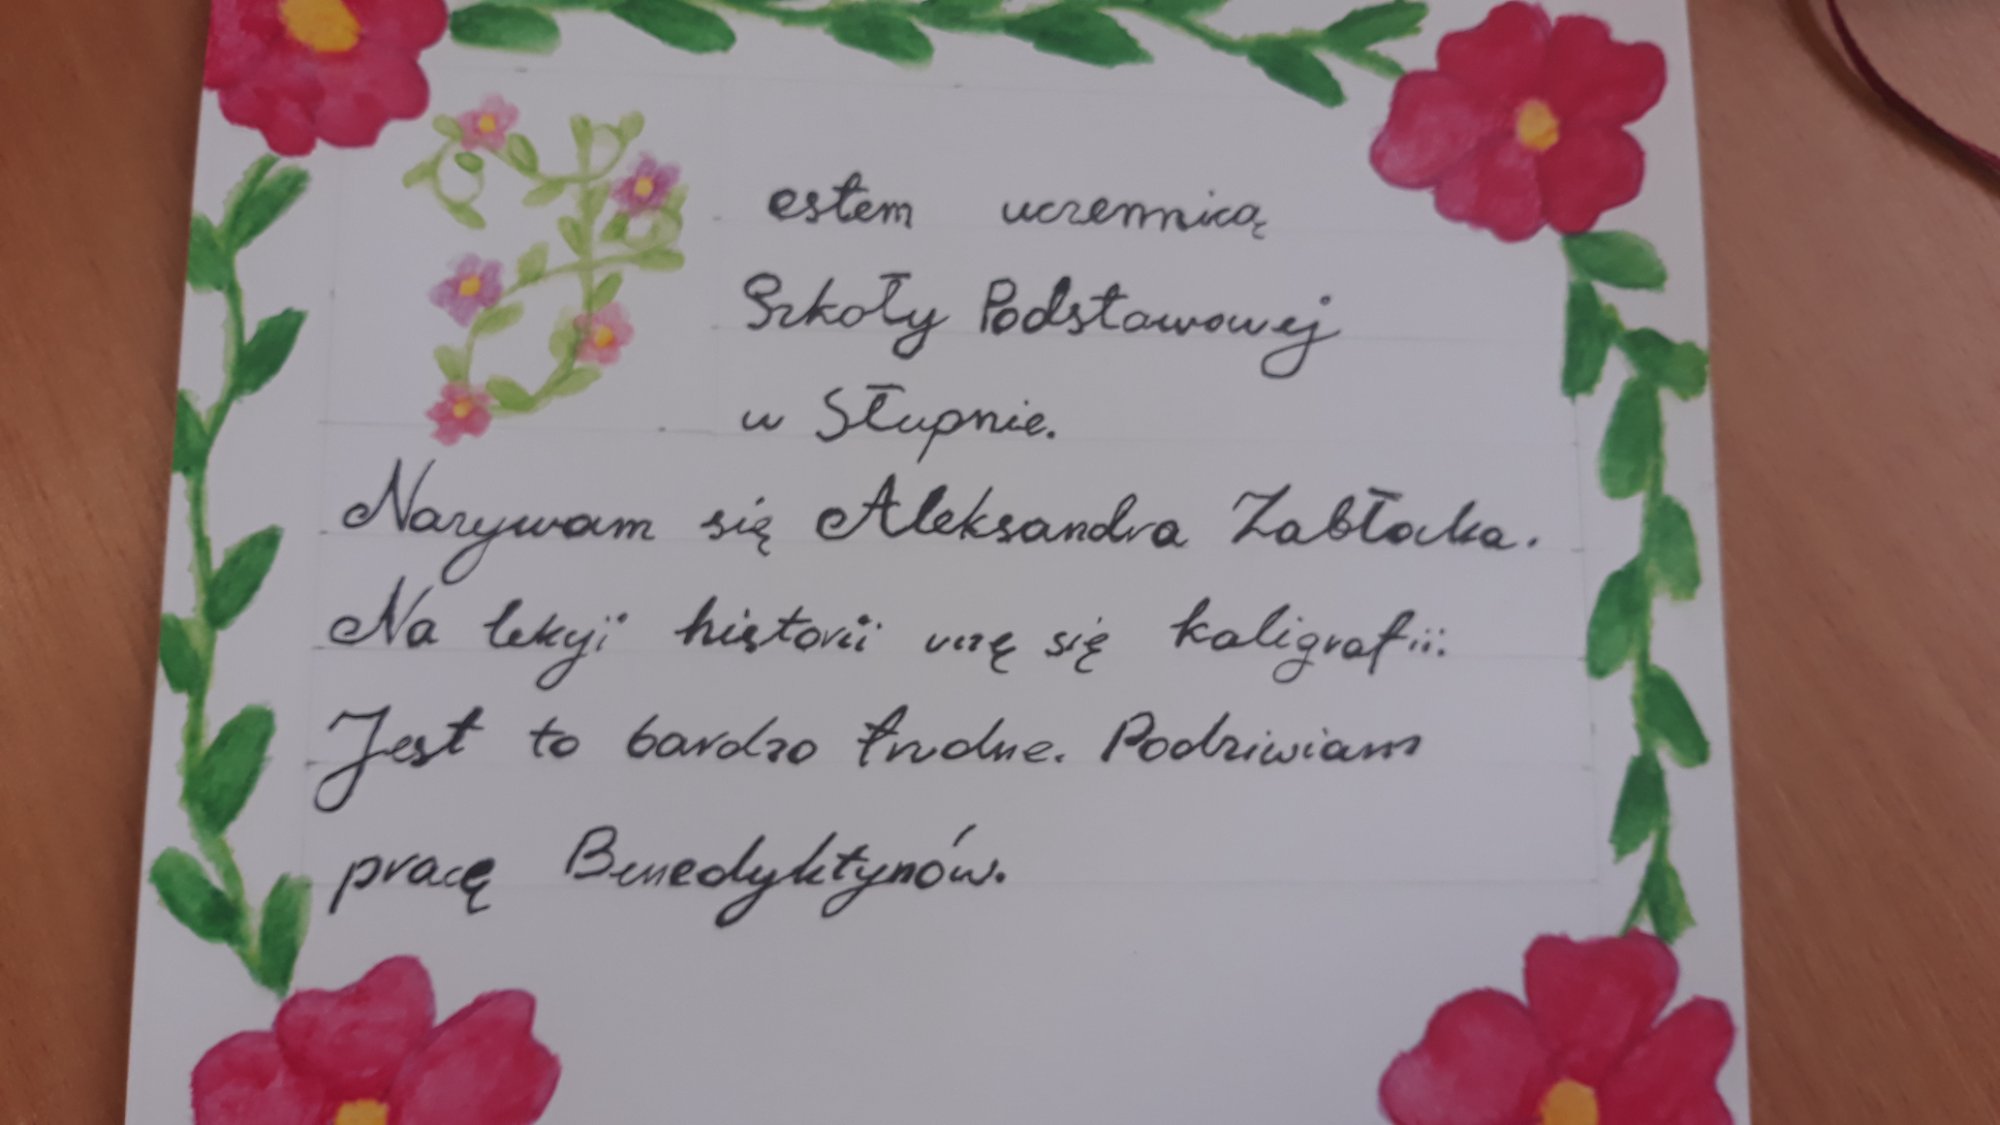 Jestem uczennicą
Szkoły Podstawowej
w Słupnie.
Nazywam się Aleksandra Zabłocka.
Na lekcji historii uczę się kaligrafii.
Jest to bardzo trudne. Podziwiam
pracę Benedyktynów.